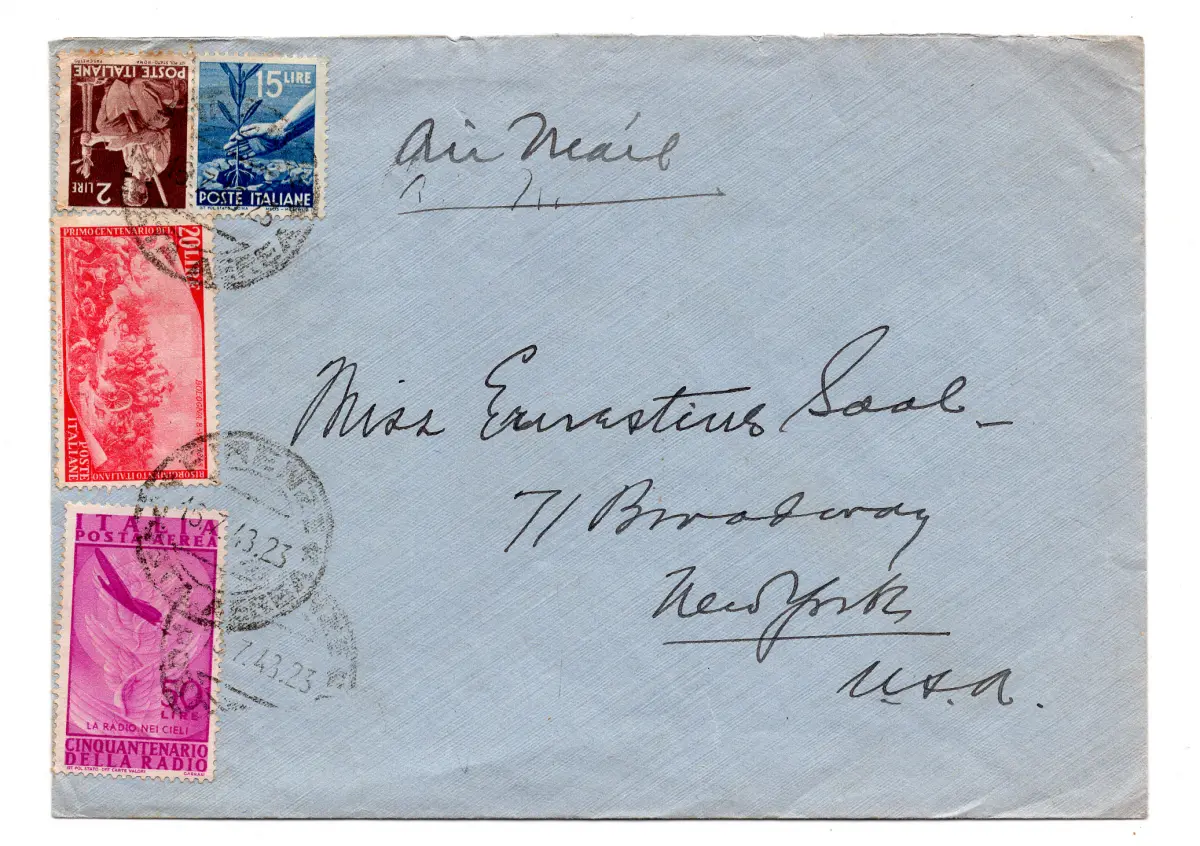 POSTE ITALIANE
2 LIRE
15 LIRE
POSTE ITALIANE
Air Mail
PRIMO CENTENARIO DEL
20 LIRE
BOLOGNA
POSTE
ITALIANE
RISORGIMENTO ITALIANO
Miss Ernestine Saal -
71 Broadway
New York
U.S.A.
FIRENZE
43.23
ITALIA
POSTA AEREA
7.43.23
50
LIRE
LA RADIO NEI CIELI
CINQUANTENARIO
DELLA RADIO